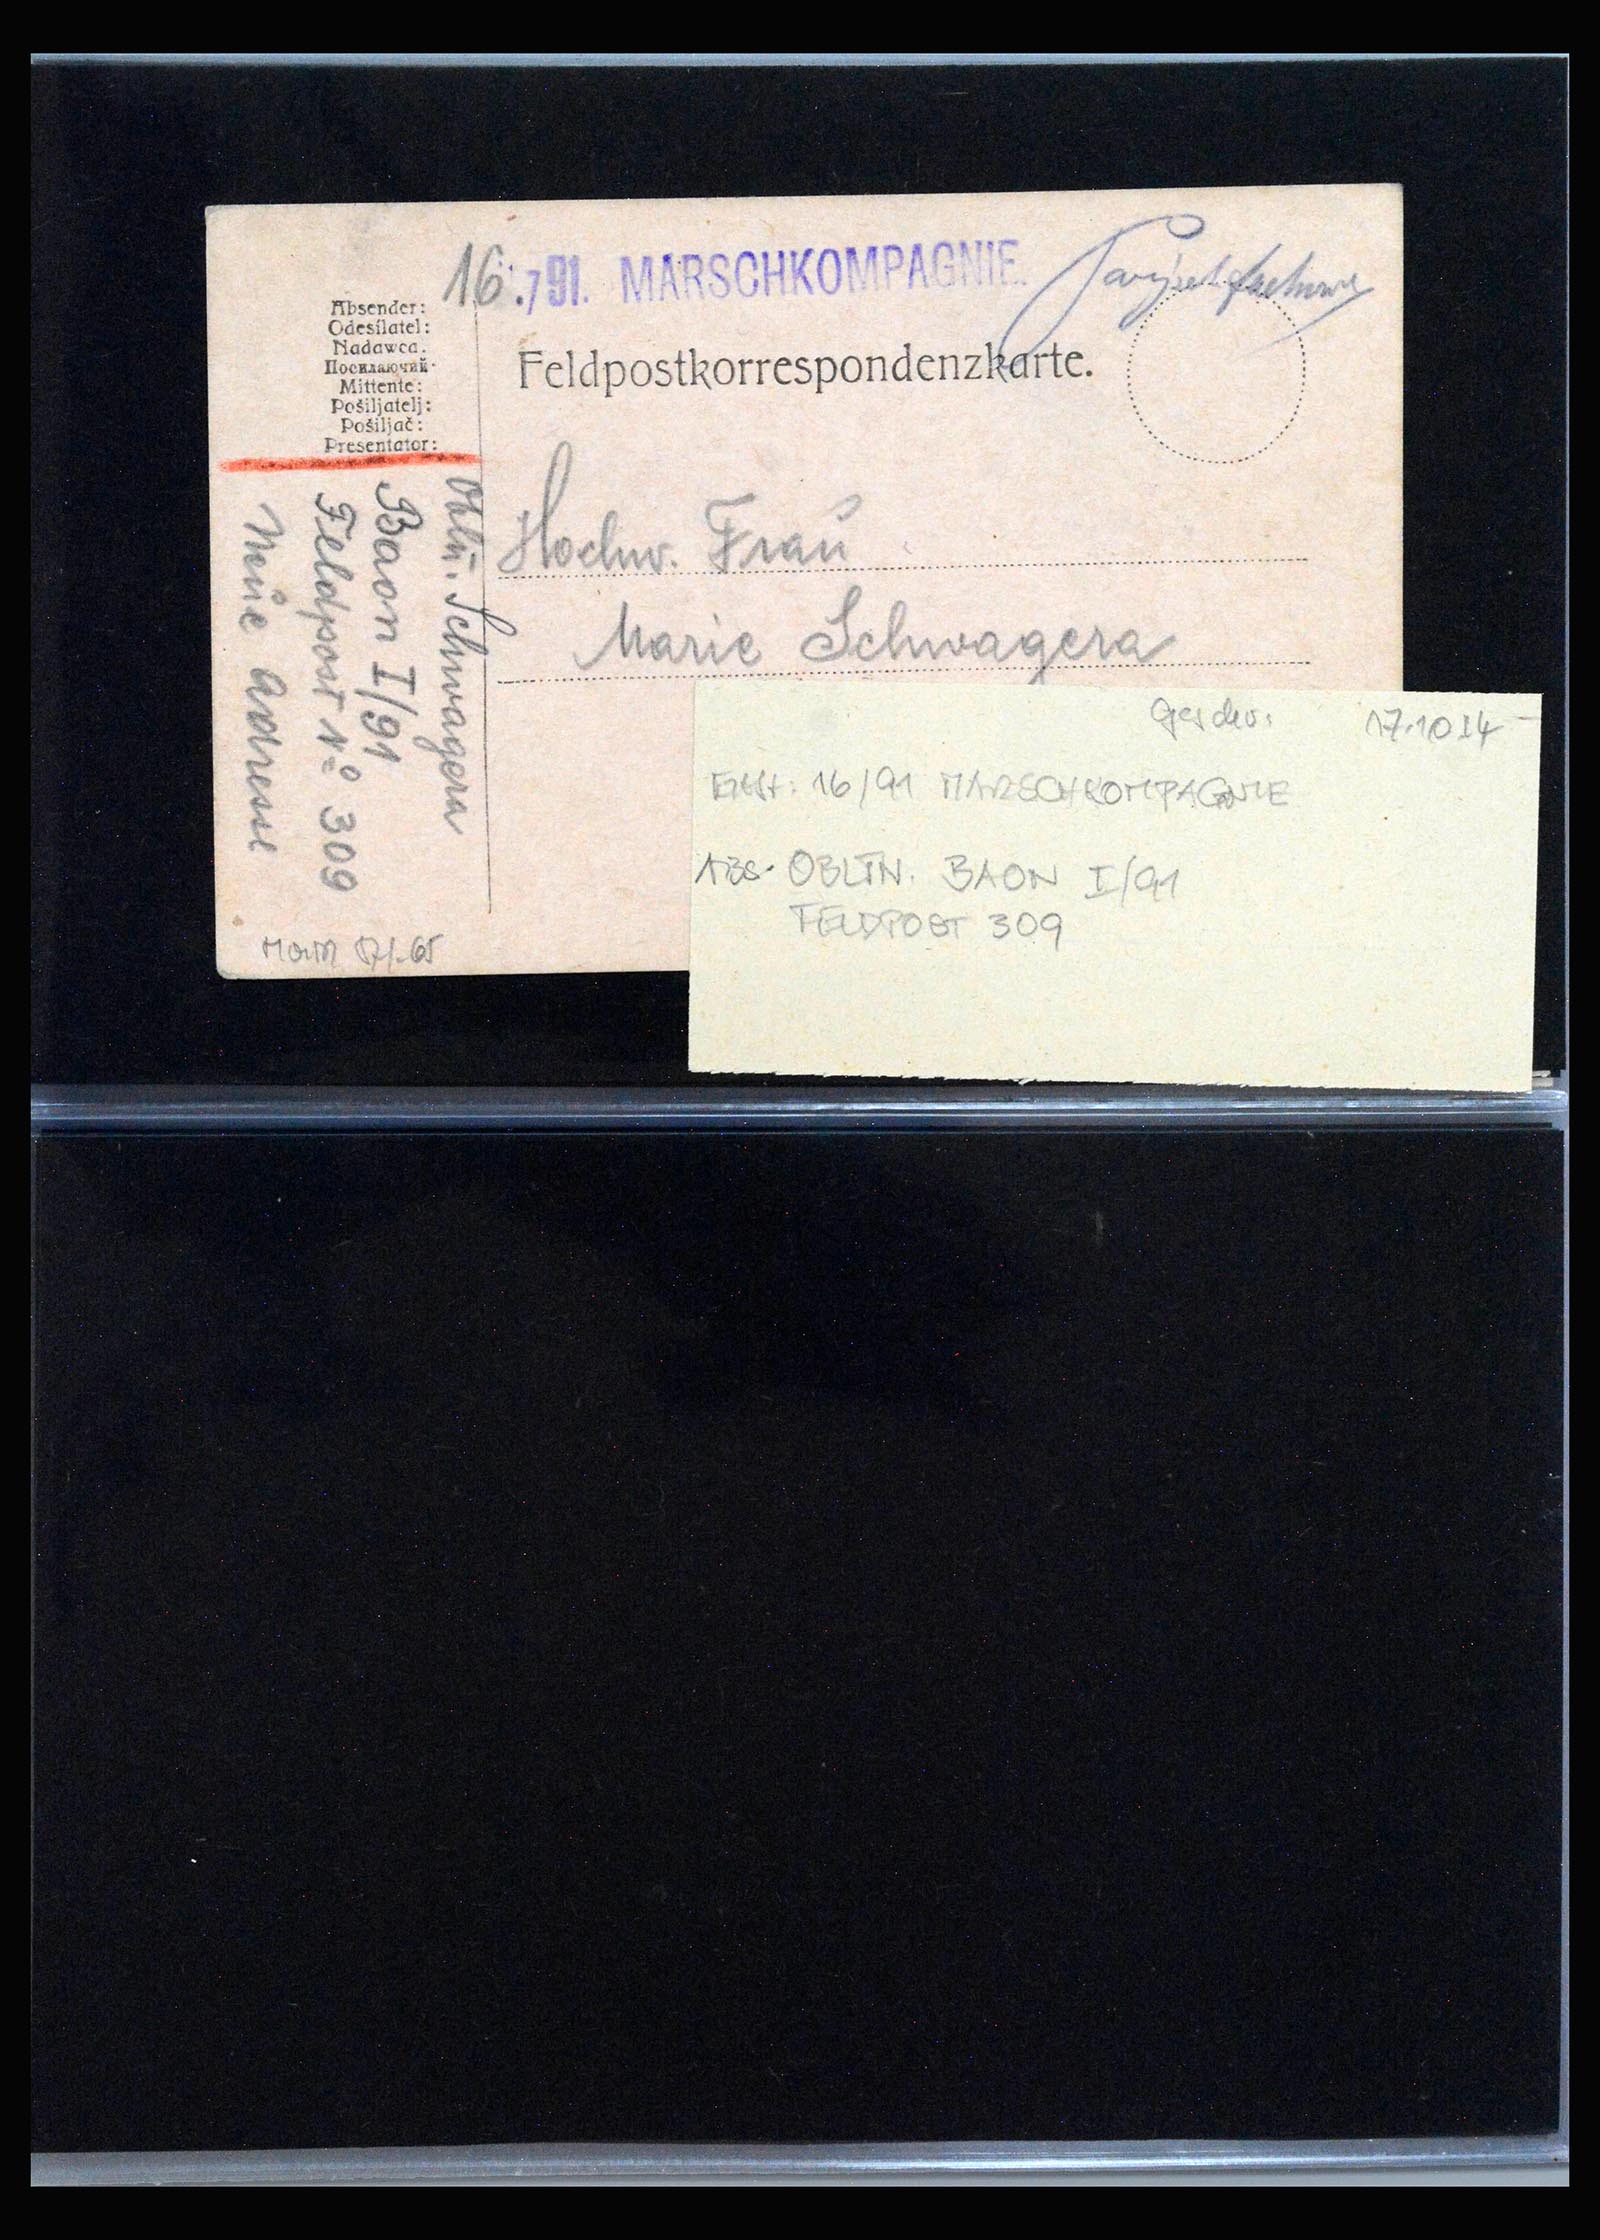 16./91. MARSCHKOMPAGNIE.
Absender:
Odesílatel:
Nadawca.
Посилаючий·
Mittente:
Pošiljatelj:
Pošiljač:
Presentator:
Feldpostkorrespondenzkarte.
Oblt. Schwagera
Baon I/91
Feldpost No 309
Neue Adresse
Hochw. Frau
Marie Schwagera
17.10 14
16/91 MARSCHKOMPAGNIE
ABS. OBLTN. BAON I/91
FELDPOST 309